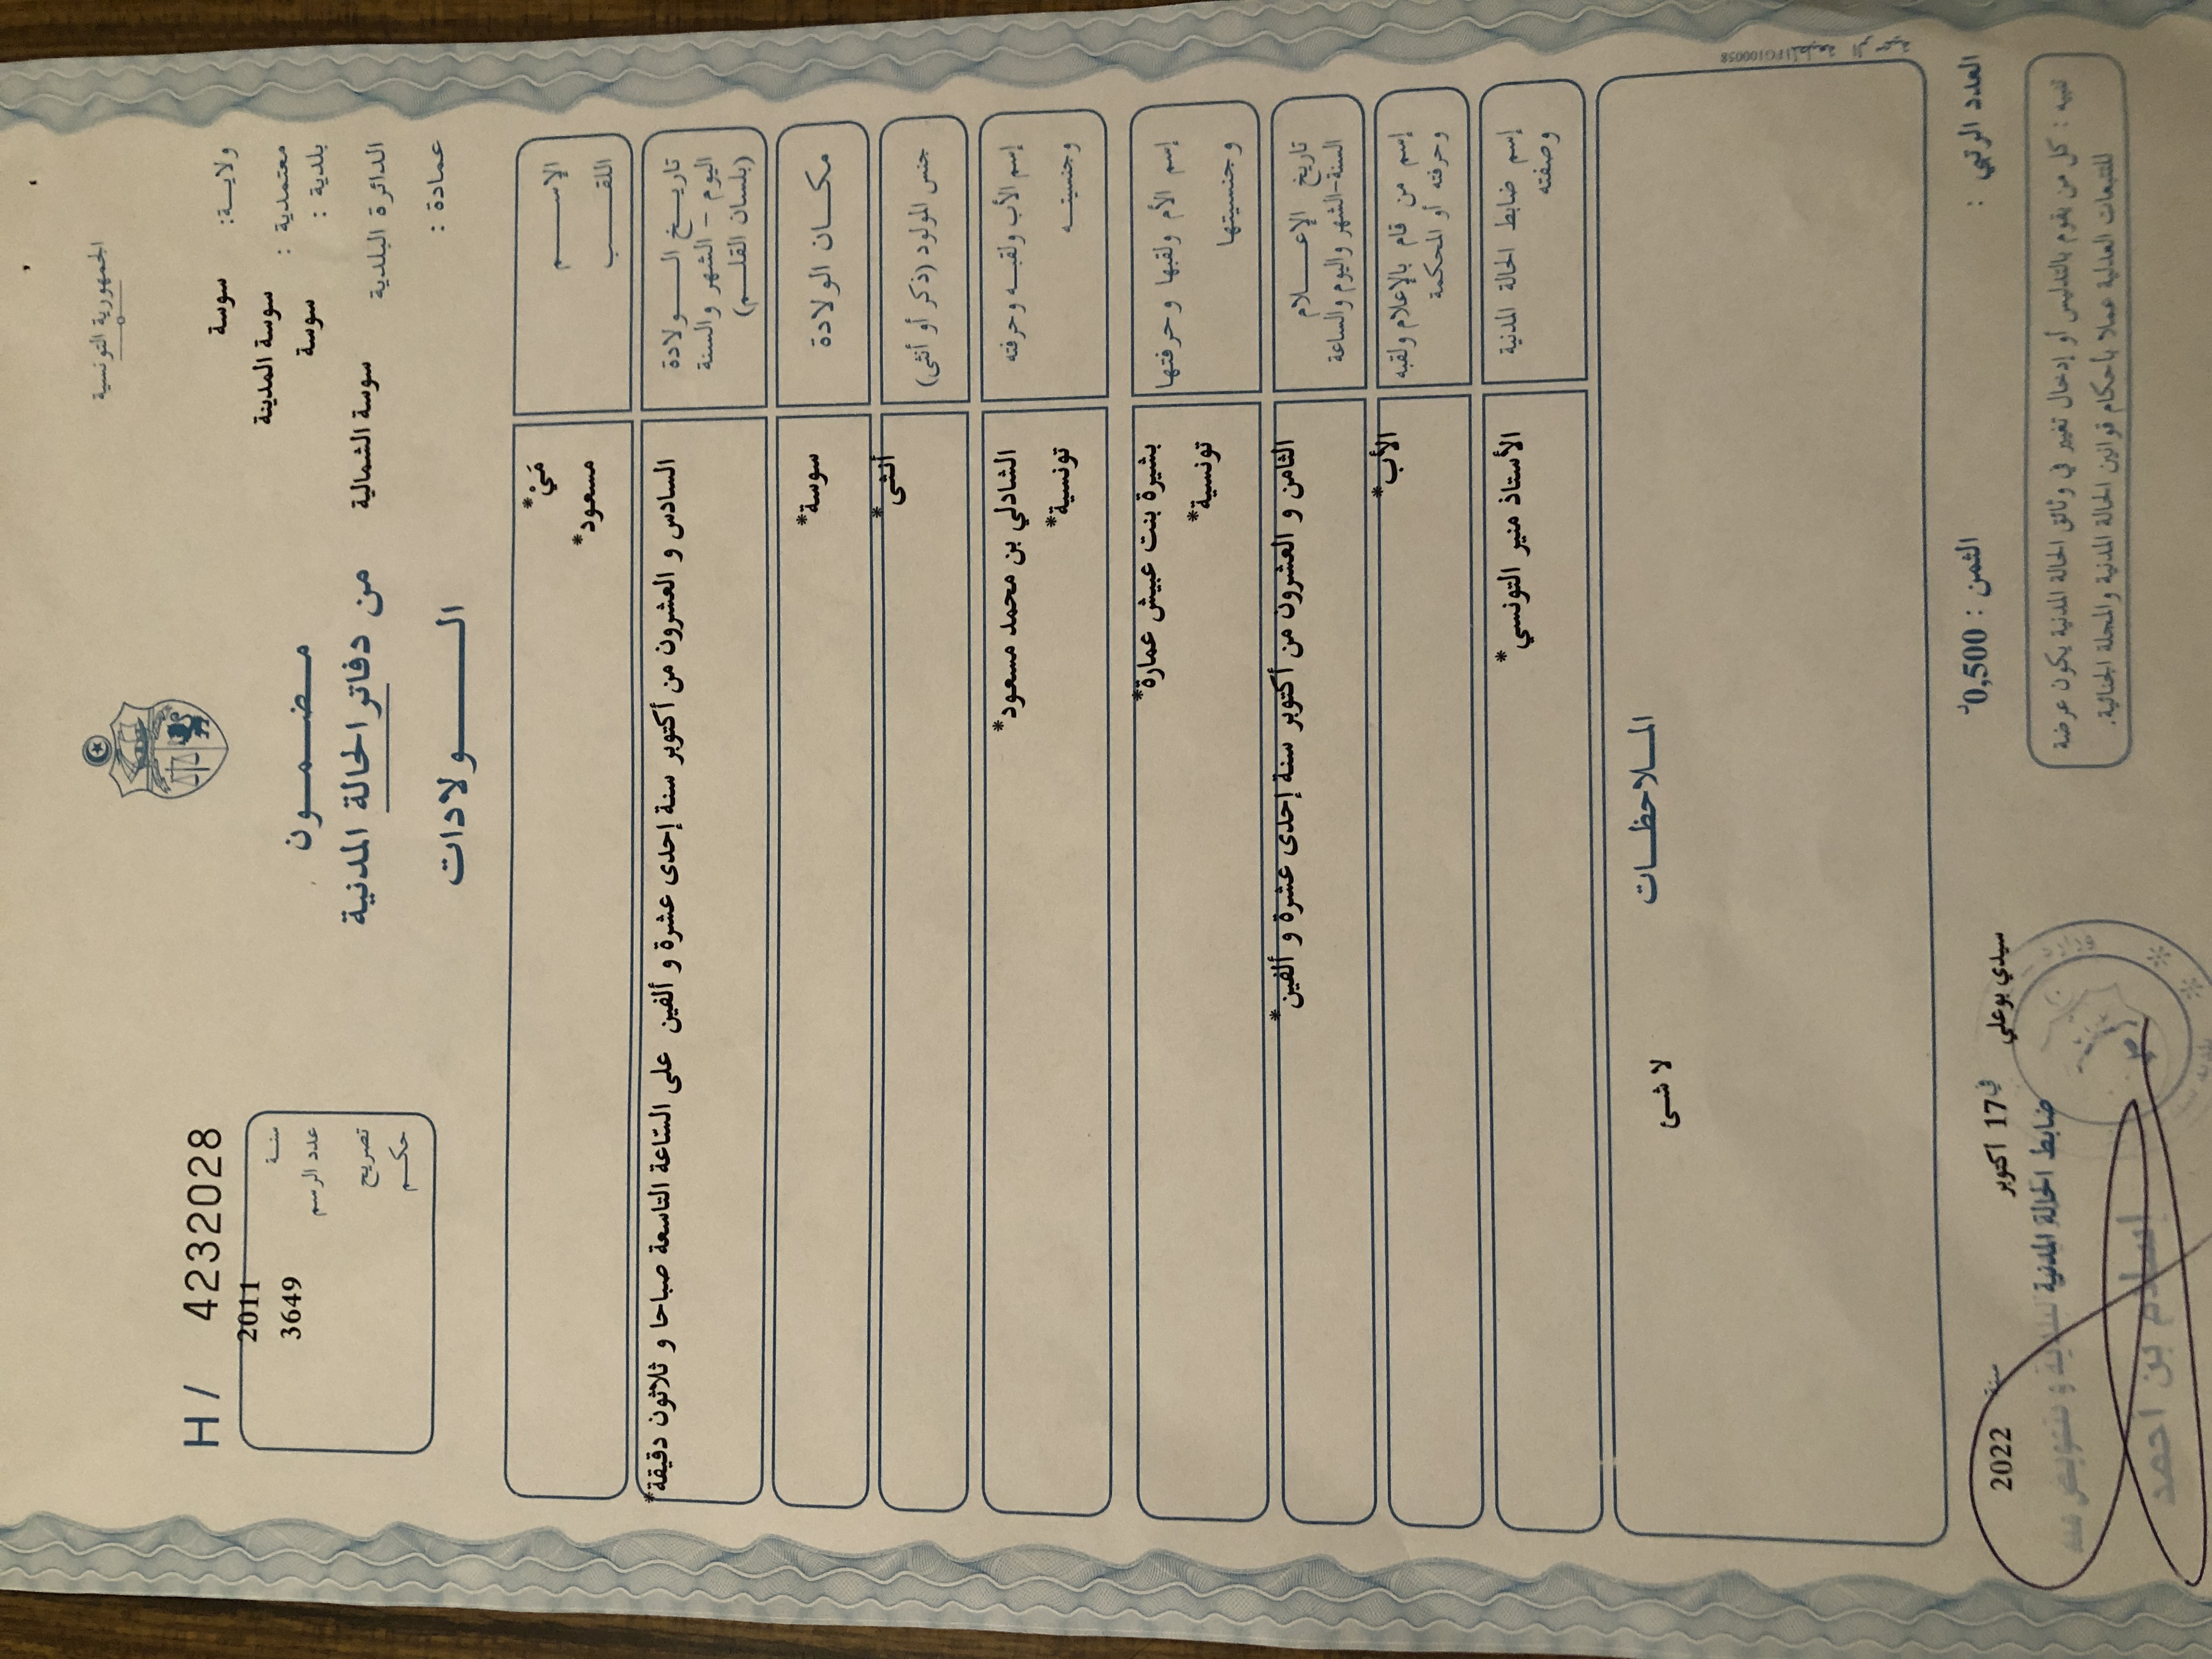 الجمهورية التونسية
ولاية: سوسة
معتمدية : سوسة المدينة
بلدية : سوسة
الدائرة البلدية سوسة الشمالية
عمادة :
مضمون
من دفاتر الحالة المدنية
الولادات
H/ 4232028
سنة 2011
عدد الرسم 3649
تصريح
حكم
الإسم مَيْ*
اللقب مسعود*
تاريخ الولادة السادس و العشرون من أكتوبر سنة إحدى عشرة و ألفين على الساعة التاسعة صباحا و ثلاثون دقيقة*
اليوم - الشهر والسنة
(بلسان القلم)
مكان الولادة سوسة*
جنس المولود (ذكر أو أنثى) أنثى*
إسم الأب ولقبه وحرفته الشادلي بن محمد مسعود*
وجنسيته تونسية*
إسم الأم ولقبها وحرفتها بشيرة بنت عبيش عمارة*
وجنسيتها تونسية*
تاريخ الإعلام الثامن و العشرون من أكتوبر سنة إحدى عشرة و ألفين*
السنة-الشهر واليوم والساعة
إسم من قام بالإعلام ولقبه الأب*
وحرفته أو المحكمة
إسم ضابط الحالة المدنية الأستاذ منير التونسي*
وصفته
الملاحظات
لا شئ
العدد الرتبي :
الثمن : 0,500د
سيدي بوعلي في 17 أكتوبر سنة 2022
ضابط الحالة المدنية
إسلام بن احمد
تنبيه : كل من يقوم بالتدليس أو إدخال تغيير في وثائق الحالة المدنية يكون عرضة
للتتبعات العدلية عملا بأحكام قوانين الحالة المدنية والمجلة الجنائية.